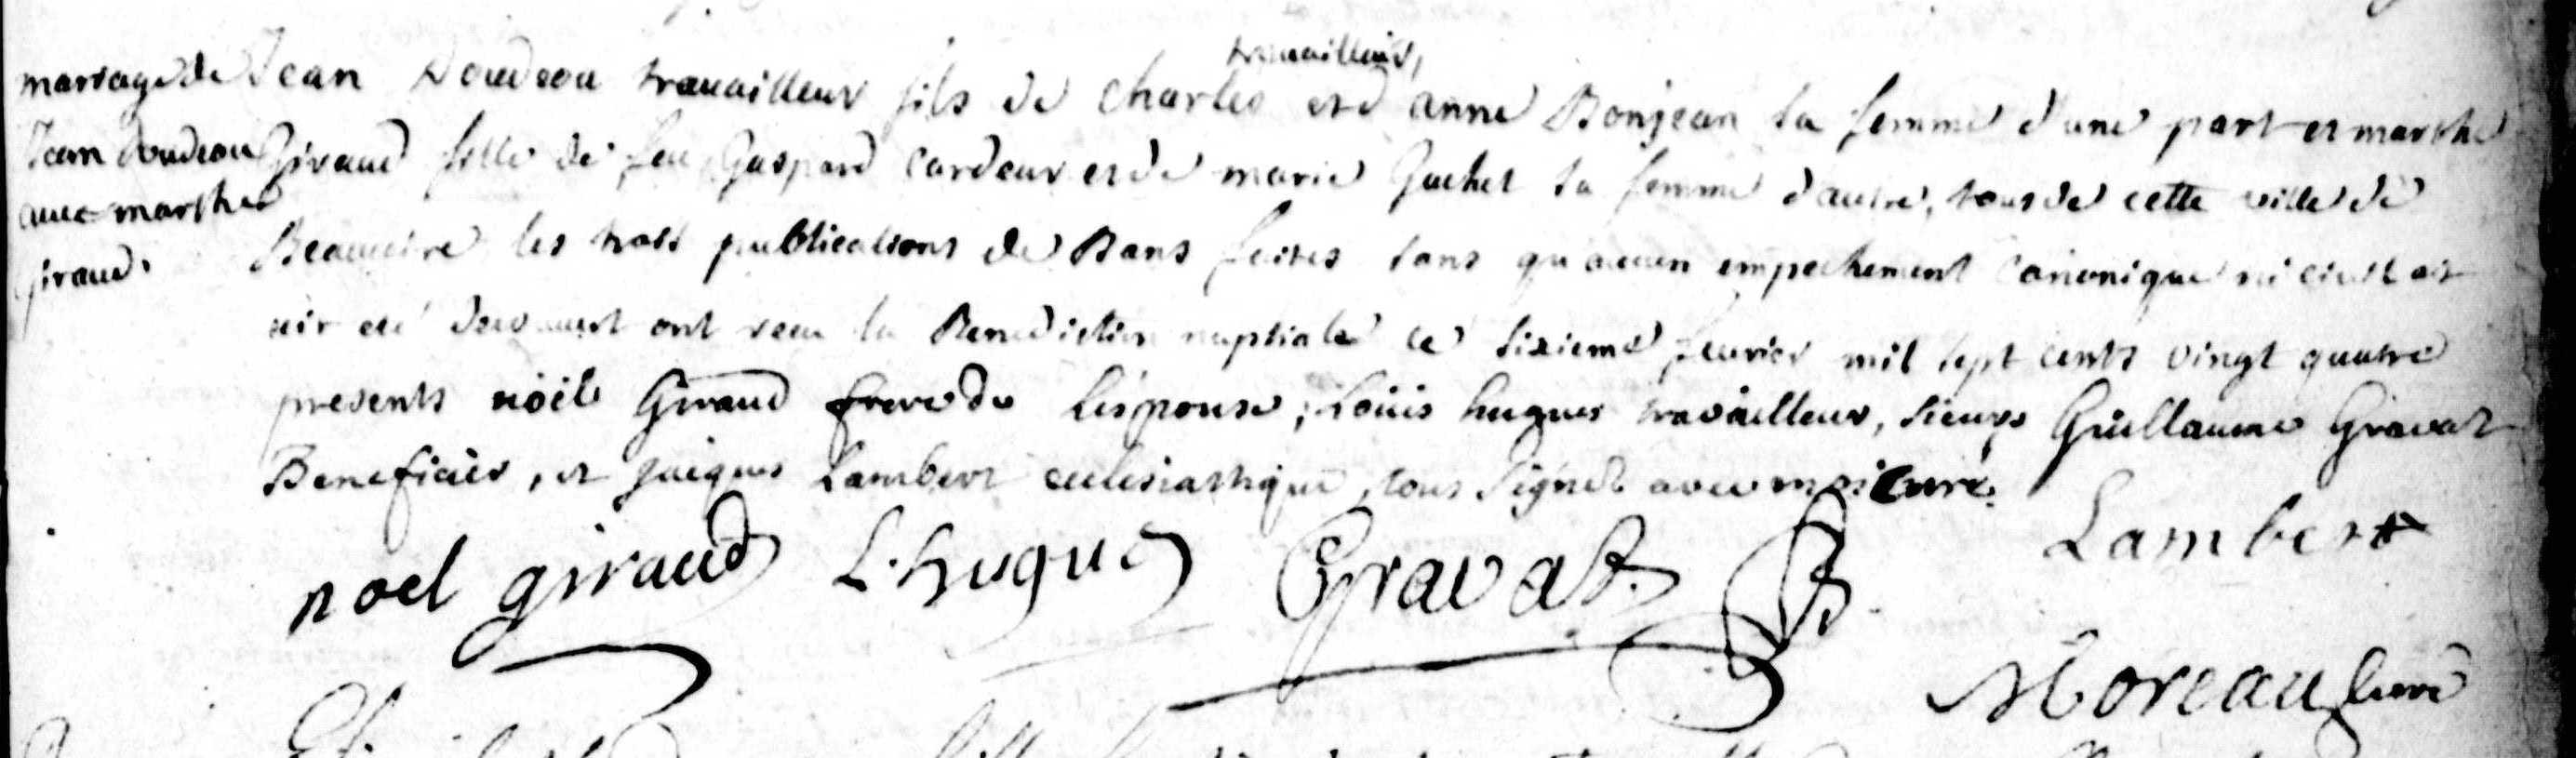 mariage de
Jean doudeou
avec marthe
giraud.
travailleur,
Jean Doudeou travailleur fils de charles et d anne Bonjean sa femme d'une part et marthe
Giraud fille de feu Gaspard Cardeur et de marie Guchet sa femme d'autre, tous de cette ville de
Beaucaire les trois publications de Bans faites sans qu aucun empechement canonique ni civil ait
été ont receu la Benediction nuptiale ce sixieme fevrier mil sept cents vingt quatre
presents noël Giraud frere de l'espouse, Loüis hugues travailleur, sieurs Guillaume Gravat
Beneficier, et jacques Lambert ecclesiastique, tous signés avec moi Curé.
noel giraud L. hugues Gravat Lambert
Moreau Curé